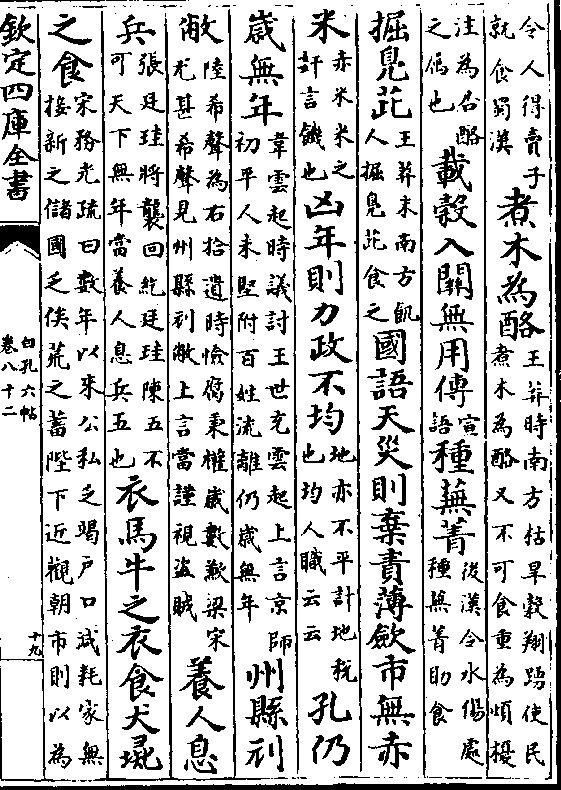 令人得賣子
就食蜀漢
煮木為酪
王莽時南方枯旱穀翔踴使民
煮木為酪又不可食重為煩擾
注為名酪
之屬也
載穀入關無用傳
宣
語
種蕪菁
後漢令水傷處
種蕪菁助食
掘鳬茈
王莽末南方飢
人掘鳬茈食之
國語天災則棄責薄歛市無赤
米
赤米米之
奸言饑也
凶年則力政不均
地亦不平計地稅
也均人職云云
孔仍
歲無年
韋雲起時議討王世充雲起上言京師
初平人未堅附百姓流離仍歲無年
州縣刓
敝
陸希聲為右拾遺時憸腐秉權歲數歉梁宋
尤甚希聲見州縣刓敝上言當謹視盜賊
養人息
兵
張廷珪將襲回紇廷珪陳五不
可天下無年當養人息兵五也
衣馬牛之衣食犬彘
之食
宋務光疏曰數年以來公私乏竭戶口減耗家無
接新之儲國乏俟荒之蓄陛下近觀朝市則以為
欽定四庫全書
白孔六帖
卷八十二
十九